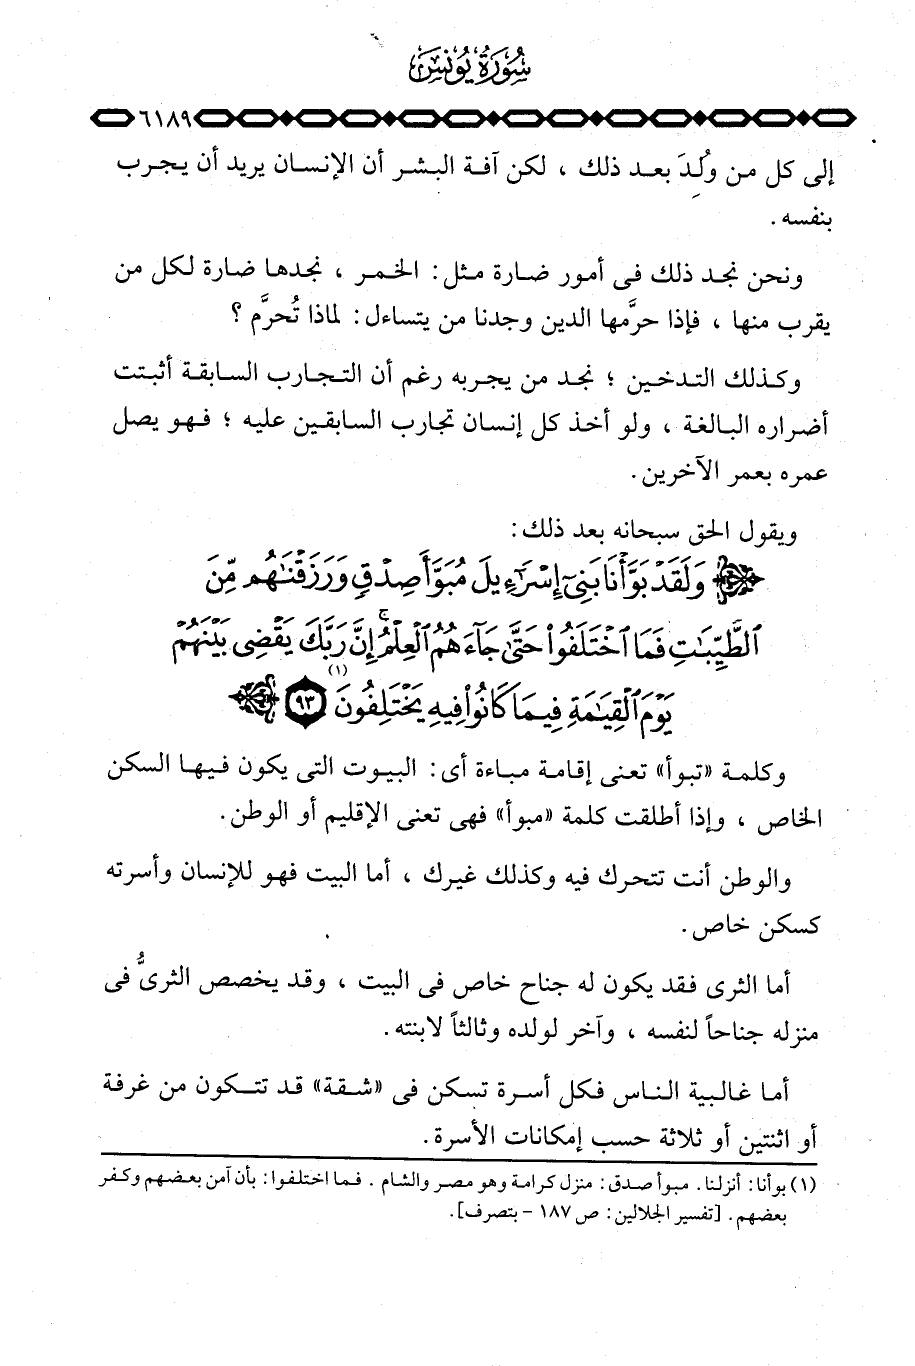 سُورَةُ يُونُسَ
٦١٨٩
إلى كل من وُلدَ بعد ذلك ، لكن آفة البشر أن الإنسان يريد أن يجرب
بنفسه .
ونحن نجد ذلك فى أمور ضارة مثل : الخمر ، نجدها ضارة لكل من
يقرب منها ، فإذا حرَّمها الدين وجدنا من يتساءل : لماذا تُحرَّم ؟
وكذلك التدخين ؛ نجد من يجربه رغم أن التجارب السابقة أثبتت
أضراره البالغة ، ولو أخذ كل إنسان تجارب السابقين عليه ؛ فهو يصل
عمره بعمر الآخرين .
ويقول الحق سبحانه بعد ذلك :
وَلَقَدْ بَوَّأْنَا بَنِىٓ إِسْرَٰٓءِيلَ مُبَوَّأَ صِدْقٍ وَرَزَقْنَٰهُم مِّنَ
ٱلطَّيِّبَٰتِ فَمَا ٱخْتَلَفُوا۟ حَتَّىٰ جَآءَهُمُ ٱلْعِلْمُ ۚ إِنَّ رَبَّكَ يَقْضِى بَيْنَهُمْ
يَوْمَ ٱلْقِيَٰمَةِ فِيمَا كَانُوا۟ فِيهِ يَخْتَلِفُونَ (١) ٩٣
وكلمة «تبوأ» تعنى إقامة مباءة أى : البيوت التى يكون فيها السكن
الخاص ، وإذا أطلقت كلمة «مبوأ» فهى تعنى الإقليم أو الوطن .
والوطن أنت تتحرك فيه وكذلك غيرك ، أما البيت فهو للإنسان وأسرته
كسكن خاص .
أما الثرى فقد يكون له جناح خاص فى البيت ، وقد يخصص الثرىُّ فى
منزله جناحاً لنفسه ، وآخر لولده وثالثاً لابنته .
أما غالبية الناس فكل أسرة تسكن فى «شقة» قد تتكون من غرفة
أو اثنتين أو ثلاثة حسب إمكانات الأسرة .
(١) بوأنا : أنزلنا . مبوأ صدق : منزل كرامة وهو مصر والشام . فما اختلفوا : بأن آمن بعضهم وكفر
بعضهم . [تفسير الجلالين : ص ١٨٧ - بتصرف] .